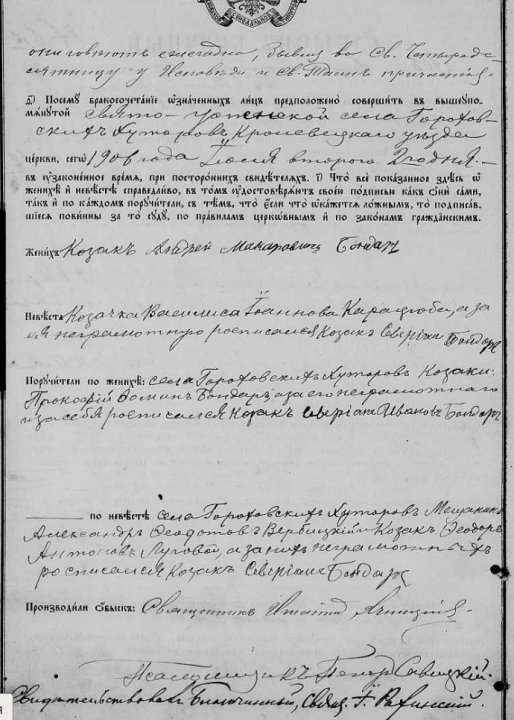 они говѣютъ ежегодно, бывая во Св. Четыредѣ-
сятницу у Исповѣди и Св. Таинъ причастія.
з) Посему бракосочетаніе означенныхъ лицъ предположено совершить въ вышеупо-
мянутой Свято- села Горохов-
скихъ Хуторовъ Кролевецкаго уѣзда
церкви, сего 1906 года Іюля второго дня.
въ узаконенное время, при постороннихъ свидѣтеляхъ. і) Что все показанное здѣсь о
женихѣ и невѣстѣ справедливо, въ томъ удостовѣряютъ своею подписью какъ они сами,
такъ и по каждомъ поручители, съ тѣмъ, что если что окажется ложнымъ, то подписав-
шіеся повинны за то суду, по правиламъ церковнымъ и по законамъ гражданскимъ.
Женихъ Козакъ Андрей Макаровичъ Бондарь
Невѣста Козачка Василиса Іоаннова Карацюба, а за
ея неграмотную росписался Козакъ Северіанъ Бондарь
Поручители по женихѣ: села Гороховскихъ Хуторовъ Козаки:
Прокофій Фоминъ Бондарь, а за его неграмотнаго
и за себя росписался Козакъ Севиріанъ Ивановъ Бондарь
по невѣстѣ села Гороховскихъ Хуторовъ Мещанинъ
Александръ Феодотовъ Вербицкій и Козакъ Феодоръ
Антоновъ Луговой, а за нихъ неграмотныхъ
росписался Козакъ Северіанъ Бондарь
Производили обыскъ: Священникъ
Псаломщикъ Петръ Савицкій.
Свидѣтельствовалъ Благочинный, Свящ. І.